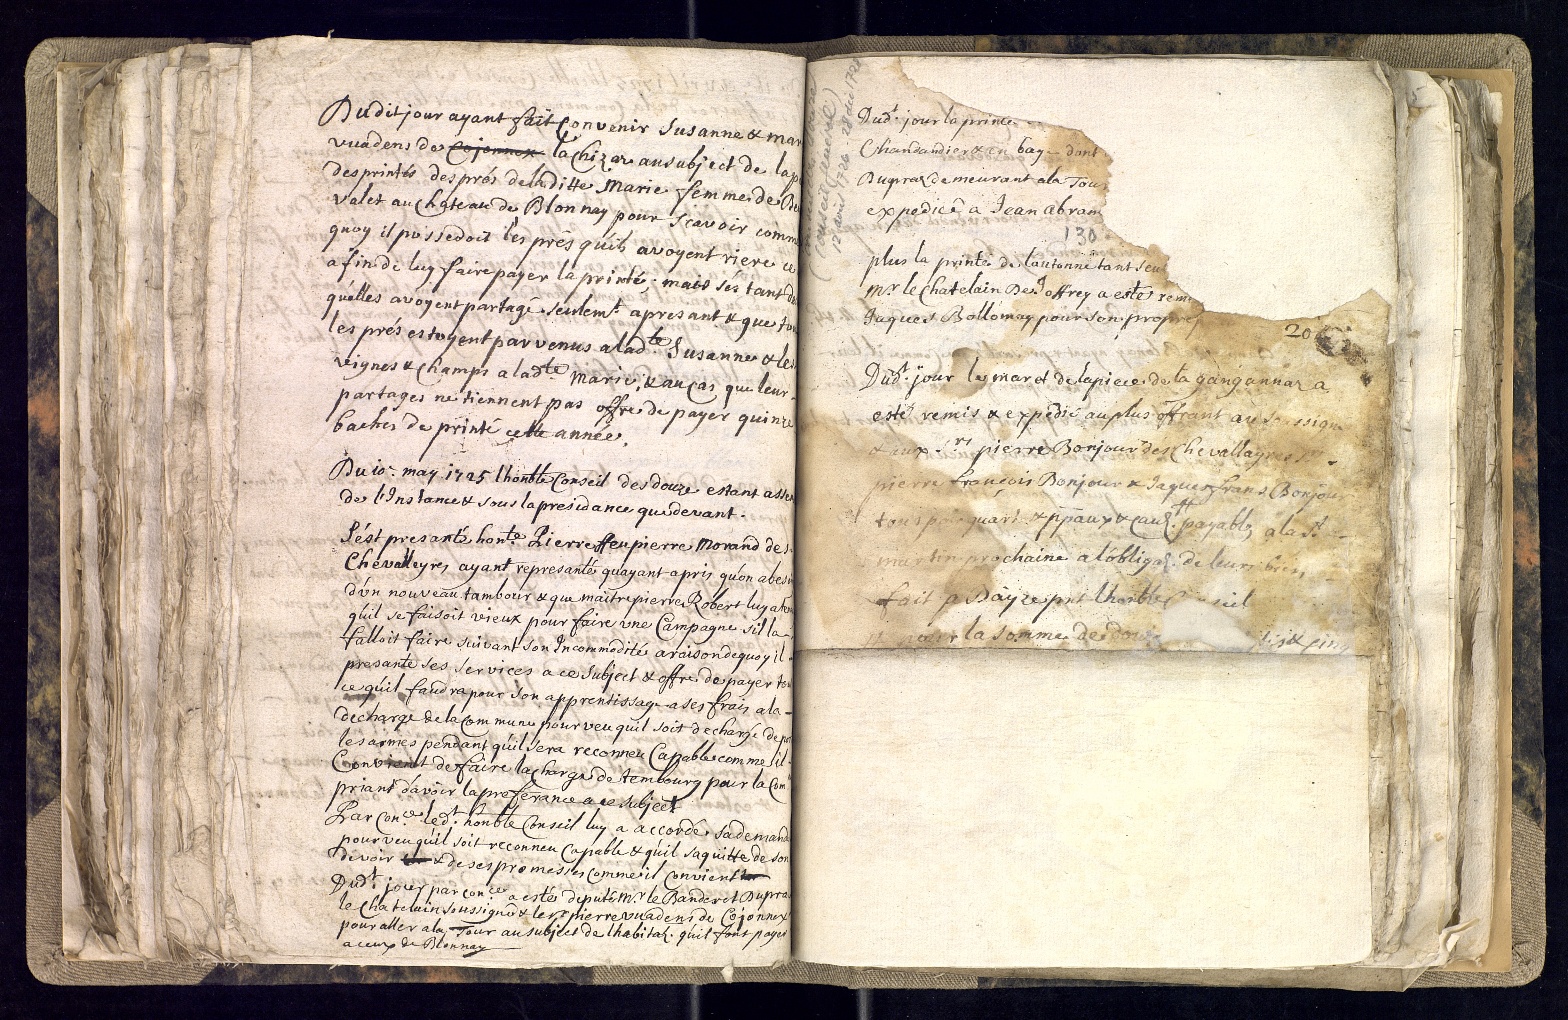 Dudit jour ayant fait Convenir Susanne & mar
vuadens de Cojonnex la Chizaz au subject de la p
des printés des prés de laditte Marie femme de De
valet au Château de Blonnay pour scavoir comm
quoy il possedoit les prés qu'ils avoyent riere ce
afin de luy faire payer la printé. mais s'estant d
quelles avoyent partagé seulemt. apresant & que to
les prés estoyent parvenus a ladte Susanne & les
vignes & champs a ladte Marie, & au cas que leur
partages ne tiennent pas offre de payer quinze
baches de printé cette année.
Du 10e. may 1725 lhonble Conseil des douze estant asse
de l'Instance & sous la presidance que devant.
S'est presanté honte. Pierre ffeu pierre Morand des
Chevalleyres ayant representé quayant apris qu'on a bes
d'vn nouveau tambour & que maitre pierre Robert luy a
qu'il se faisoit vieux pour faire vne Campagne s'il la
falloit faire suivant son Incommodité a raison de quoy il
presante ses services a ce subject & offre de payer to
ce qu'il faudra pour son apprentissage a ses frais a la
decharge de la Commune pourveu quil soit decharge de po
les armes pendant qu'il sera reconneu Capable comme il
Convient de faire la charge de tembourg pour la Com
priant d'avoir la preferance a ce subject
Par Conce. led. honble Conseil luy a accordé sa demand
pourveu qu'il soit reconneu Capable & quil s'aquitte de son
devoir & de ses promesses comme il Convient
Dudt. jour par conce. a estés deputé Mr. le Banderet Dupra
le Chatelain soussigné & le sr pierre vuadens de Cojonnex
pour aller a la Tour au subject de lhabitaõ. qu'il font payer
a ceux de Blonnay
(conseil général)
12 avril 1726 28 dec 1728
Dudt. jour la printe
Chandandier & en baye dont
Dupraz demeurant a la Tou
expediée a Jean abram
130
plus la printés de lautonne tant seul
Mr. le Chatelain De Joffrey a estés rem
Jaques Bollomay pour son propre
20
Dudt. jour les mares de la piece de la gangannaz a
estés remis & expedié au plus offrant au soussign
& aux srs pierre Bonjour des Chevalleyres
pierre françois Bonjour & Jaques frans Bonjou
tous par quart & ppaux & caut. payable a la St
martin prochaine a l'obligaõ. de leurs biens
fait p dayze pnt lhonble Conseil
pour la somme de dou dix & cinq